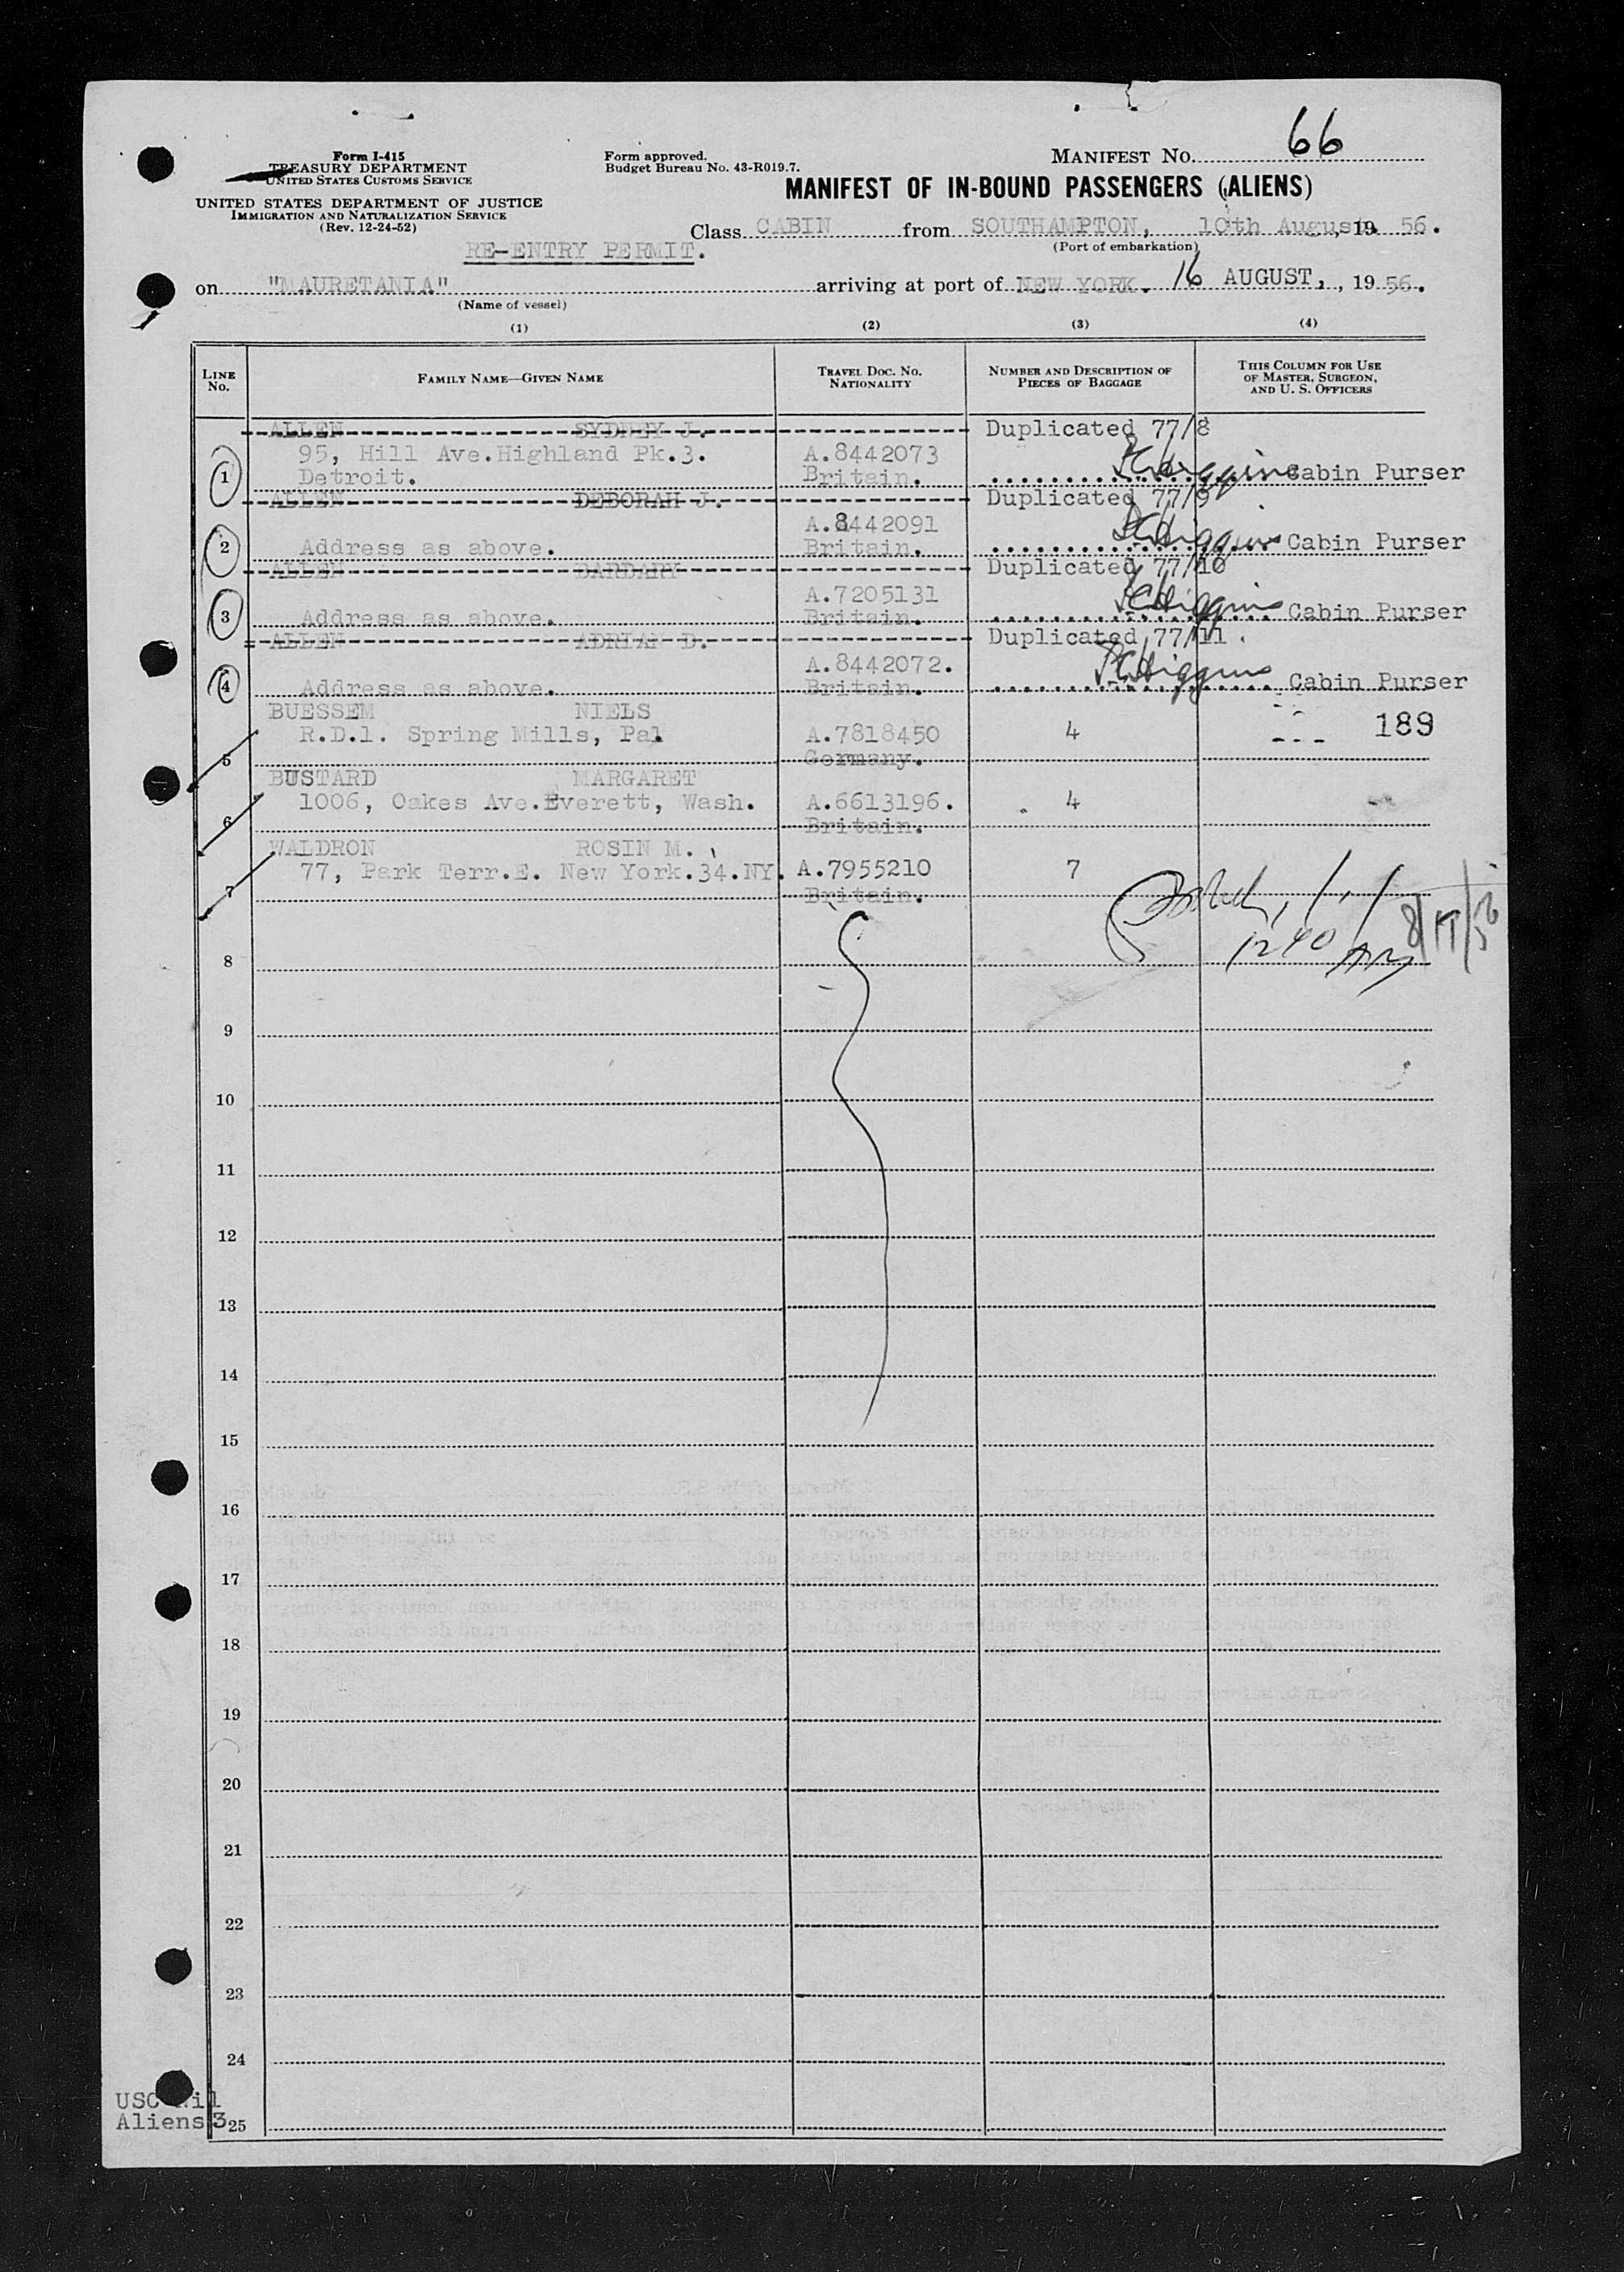 66
Form I-415
TREASURY DEPARTMENT
UNITED STATES CUSTOMS SERVICE
UNITED STATES DEPARTMENT OF JUSTICE
IMMIGRATION AND NATURALIZATION SERVICE
(Rev. 12-24-52)
Form approved.
Budget Bureau No. 43-R019.7.
MANIFEST No.
MANIFEST OF IN-BOUND PASSENGERS (ALIENS)
Class CABIN from SOUTHAMPTON, 10th August, 19 56.
(Port of embarkation)
RE-ENTRY PERMIT.
on "MAURETANIA" arriving at port of NEW YORK. 16 AUGUST, , 19 56.
(Name of vessel)
(1) (2) (3) (4)
LINE No. FAMILY NAME—GIVEN NAME TRAVEL DOC. No. NATIONALITY NUMBER AND DESCRIPTION OF PIECES OF BAGGAGE THIS COLUMN FOR USE OF MASTER, SURGEON, AND U. S. OFFICERS
ALLEN SYDNEY J. Duplicated 77/8
95, Hill Ave.Highland Pk.3. A.8442073
1 Detroit. Britain. Higgins Cabin Purser
ALLEN DEBORAH J. Duplicated 77/9
A.8442091
2 Address as above. Britain. Higgins Cabin Purser
ALLEN Duplicated 77/10
A.7205131
3 Address as above. Britain. Higgins Cabin Purser
ALLEN ADRIAN D. Duplicated 77/11.
A.8442072.
4 Address as above. Britain. Higgins Cabin Purser
BUESSEM NIELS
R.D.1. Spring Mills, Pa. A.7818450 4 189
5 Germany.
BUSTARD MARGARET
1006, Oakes Ave.Everett, Wash. A.6613196. 4
6 Britain.
WALDRON ROSIN M.
77, Park Terr.E. New York.34.NY. A.7955210 7
7 Britain.
1240 AM
8
9
10
11
12
13
14
15
16
17
18
19
20
21
22
23
24
USC Nil
Aliens 3
25